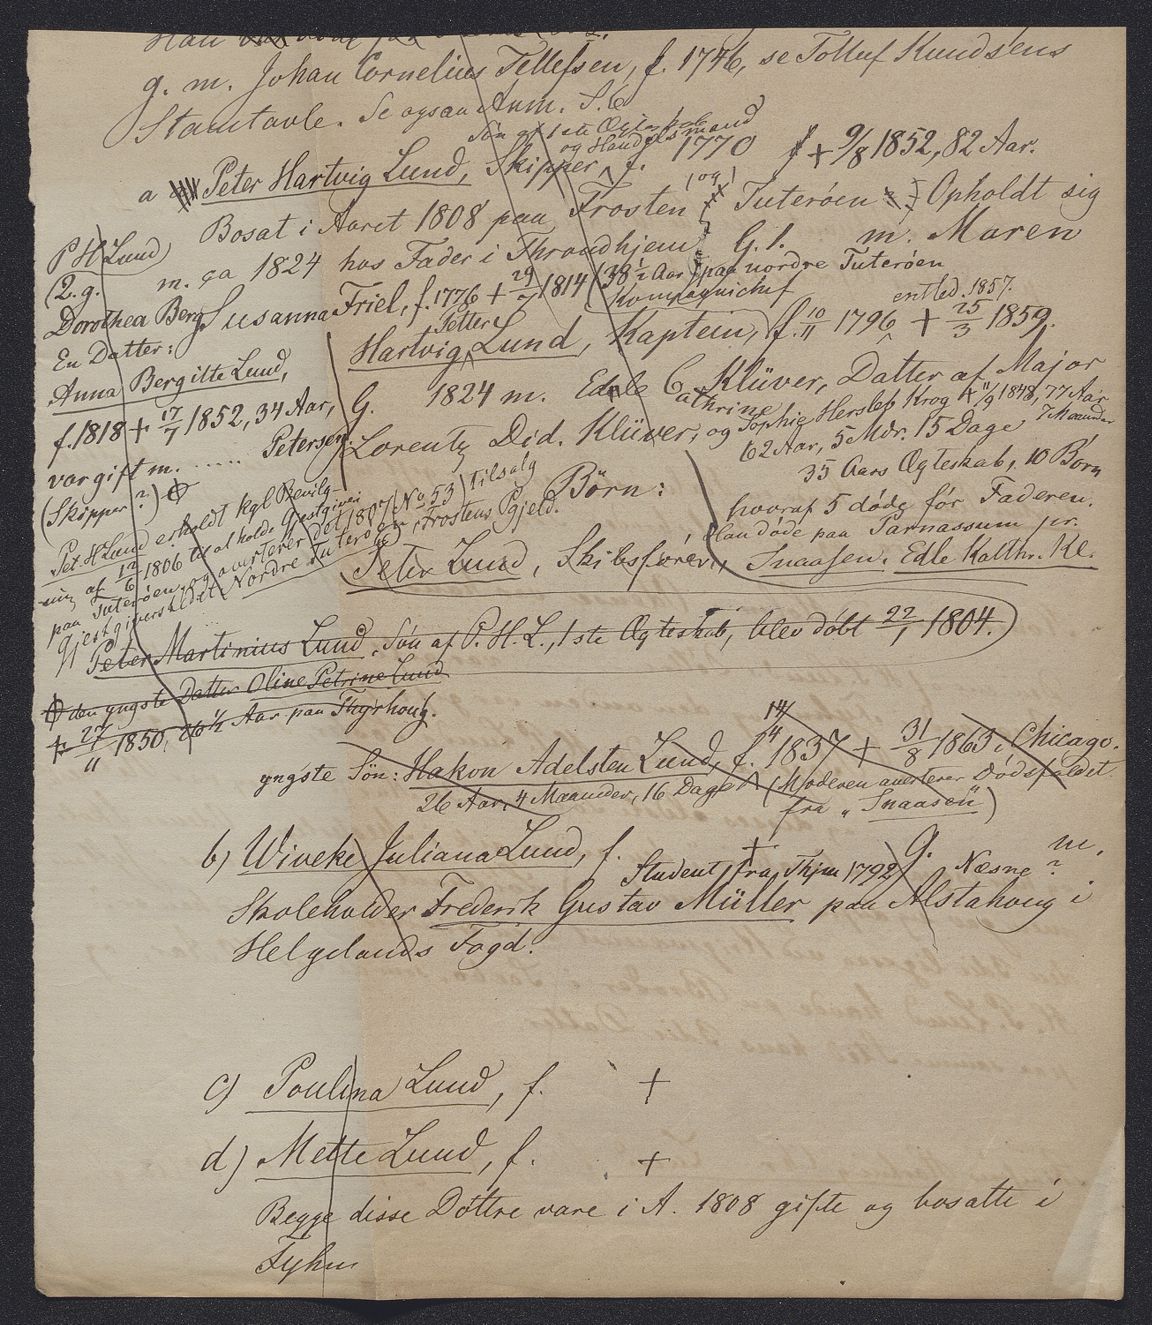 g. m. Johan Cornelius Tellefsen, f. 1746, se Tolluf Knudsens
Stamtavle. Se ogsaa Anm. S. 6
Søn af 1ste Ægteskab
og Handelsmand
a Peter Hartvig Lund, Skipper, f. 1770 + 9/8 1852, 82 Aar.
Bosat i Aaret 1808 paa Frosten (og) Tuterøen Opholdt sig
m. ca 1824 hos Fader i Throndhjem G. 1. m. Maren
Susanna Friel, f. 1776 + 29/7 1814 (38 1/2 Aar) paa nordre Tuterøen
P H Lund
(2. g.
Dorothea Berg
En Datter:
Anna Bergitte Lund,
f. 1818 + 17/7 1852, 34 Aar,
var gift m. ...... Petersen
(Skipper?)
Kompagnichef
entled. 1857.
Petter
Hartvig Lund, Kaptein, f. 10/11 1796 + 25/3 1859.
G. 1824 m. Edle Cathrine Klüver, Datter af Major
Lorentz Did. Klüver, og Sophie Herslep Krog + 11/9 1848, 77 Aar
7 Maaneder
62 Aar, 5 Mdr. 15 Dage
35 Aars Ægteskab, 10 Børn
hvoraf 5 døde før Faderen.
Han døde paa Parnassum pr.
Snaasen. Edle Kathr. Kl.
Børn:
Peter Lund, Skibsfører,
Pet. H Lund erholdt kgl Bevilg-
ning af 12/6 1806 til at holde Gjestgiveri
paa Tuterøen, og averterer det 1807 (No 53) tilsalg
Gjestgiverstedet Nordre Tuterøen, Frostens Pgjeld.
Peter Martinius Lund, Søn af P. H. L., 1ste Ægteskab, blev døbt 22/1 1804.)
den yngste Datter Oline Petrine Lund
+ 27/11 1850, 26 1/2 Aar paa Thyrhoug.
yngste Søn: Hakon Adelsten Lund, f. 14/4 1837 + 31/8 1863 i Chicago.
26 Aar, 4 Maaneder, 16 Dage (Moderen averterer Dødsfaldet
fra "Snaasen")
b) Wiveke Juliana Lund, f. + g. m.
Student fra Thjm 1792 Næsne ?
Skoleholder Frederik Gustav Müller paa Alstahoug i
Helgelands Fogd.
c) Poulina Lund, f. +
d) Mette Lund, f. +
Begge disse Døttre vare i A. 1808 gifte og bosatte i
Fyhn